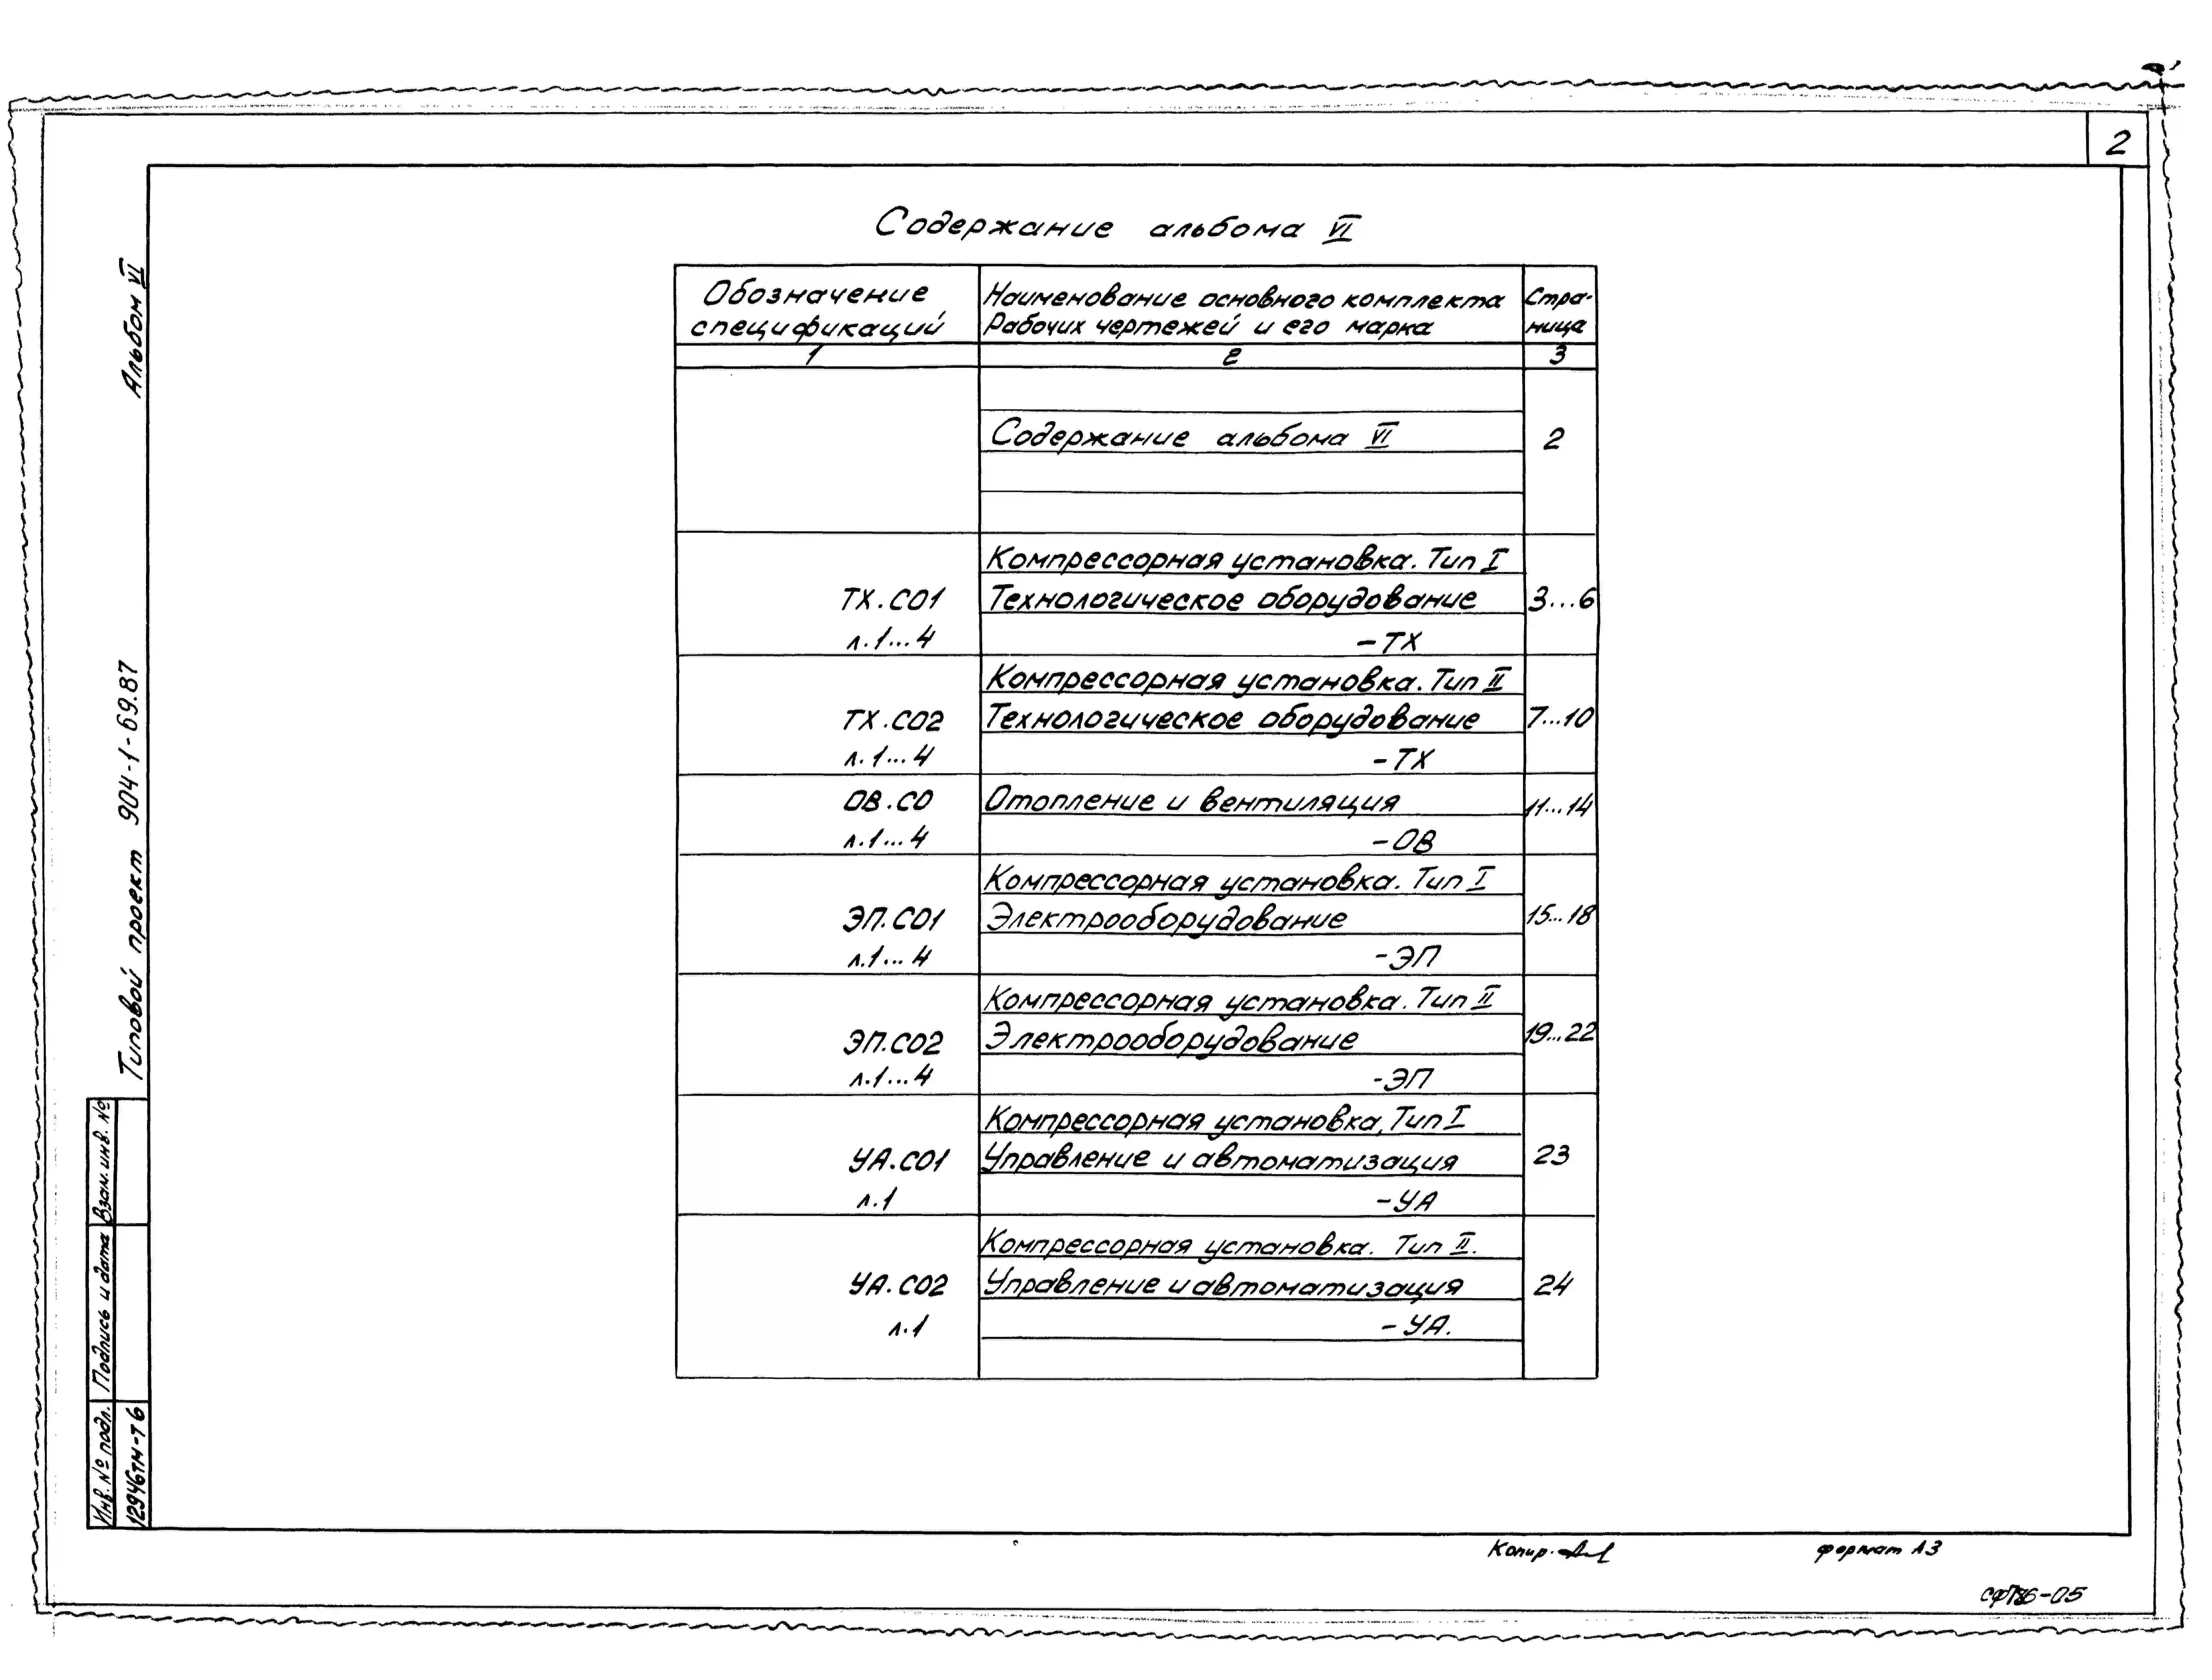 2
Содержание альбома VI
Обозначение спецификаций
Наименование основного комплекта
Рабочих чертежей и его марка
Стра-
ница
1 2 3
Содержание альбома VI 2
Компрессорная установка. Тип I
ТХ.СО1 Технологическое оборудование 3...6
л.1...4 -ТХ
Компрессорная установка. Тип II
ТХ.СО2 Технологическое оборудование 7...10
л.1...4 -ТХ
ОВ.СО Отопление и вентиляция 11...14
л.1...4 -ОВ
Компрессорная установка. Тип I
ЭП.СО1 Электрооборудование 15...18
л.1...4 -ЭП
Компрессорная установка. Тип II
ЭП.СО2 Электрооборудование 19...22
л.1...4 -ЭП
Компрессорная установка, Тип I
УА.СО1 Управление и автоматизация 23
л.1 -УА
Компрессорная установка. Тип II.
УА.СО2 Управление и автоматизация 24
л.1 -УА.
Альбом VI
Типовой проект 904-1-69.87
Взам. инв. №
Подпись и дата
Инв. № подл.
12946тм-т6
Копир.
формат А3